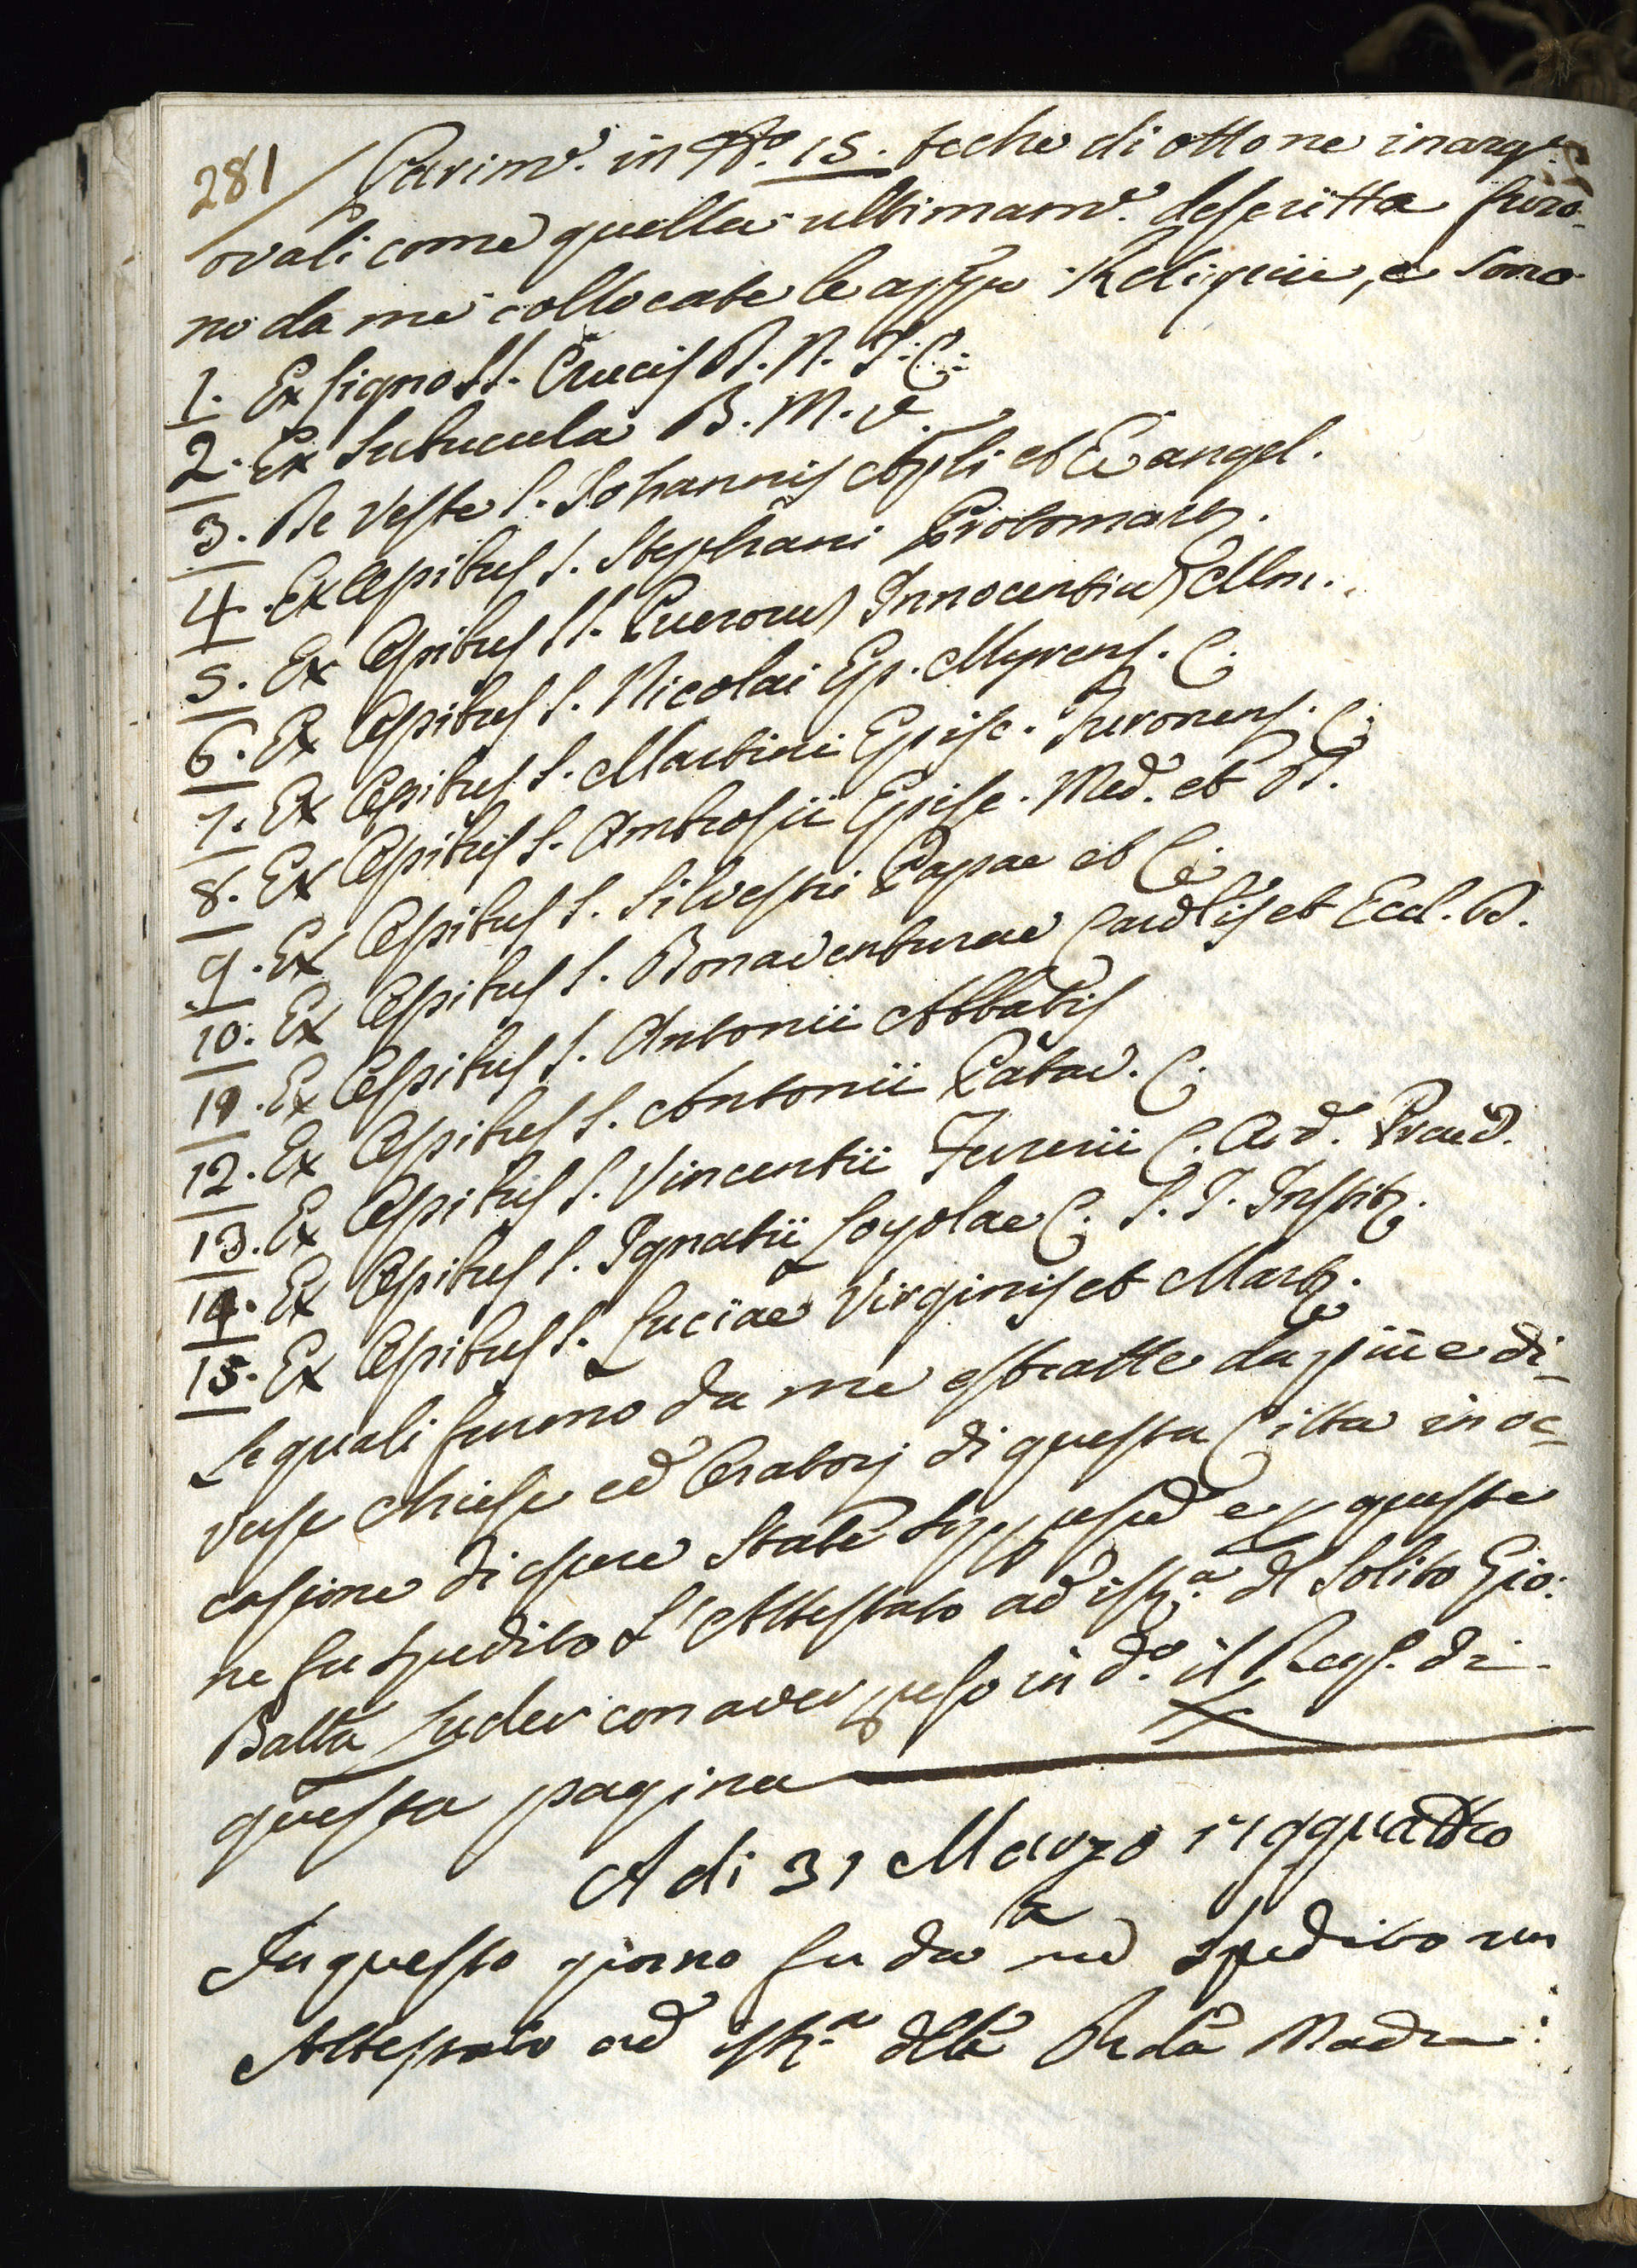 281 Parim.e in N.o 15. teche di ottone inarg.e
ovali come quella ultimam.e descritta furo-
no da me collocate le app.e Reliquie, e sono
1. Ex Ligno SS. Crucis D. N. J: C:
2. Ex Subucula B. M. V.
3. De Veste S. Johannis Apli et Evangel.
4. Ex Ossibus S. Stephani Protomart.
5. Ex Ossibus SS. Puerorum Innocentium Mm.
6. Ex Ossibus S. Nicolai Ep. Myrens. C.
7. Ex Ossibus S. Martini Episc. Turonens. C.
8. Ex Ossibus S. Ambrosii Episc. Med. et D.
9. Ex Ossibus S. Silvestri Papae et C.
10. Ex Ossibus S. Bonaventurae Cardlis et Eccl. D.
11. Ex Ossibus S. Antonii Abbatis
12. Ex Ossibus S. Antonii Patav. C.
13. Ex Ossibus S. Vincentii Ferrerii C. Ord. Praed.
14. Ex Ossibus S. Ignatii Loyolae C. S. J. Instit.
15. Ex Ossibus S. Luciae Virginis et Mart.
Le quali furono da me estratte da più e di-
verse Chiese ed Oratorj di questa Città in oc-
casione di essere State Soppresse e queste
ne fu spedito L'Attestato ad ist.a dl Solito Gio:
Batta Suder con aver preso in d.o il Regs. di
questa pagina
A di 31 Marzo 179quattro
In questo giorno fu da me spedito un
Attestato ad ist.a dlla Rda Madre: